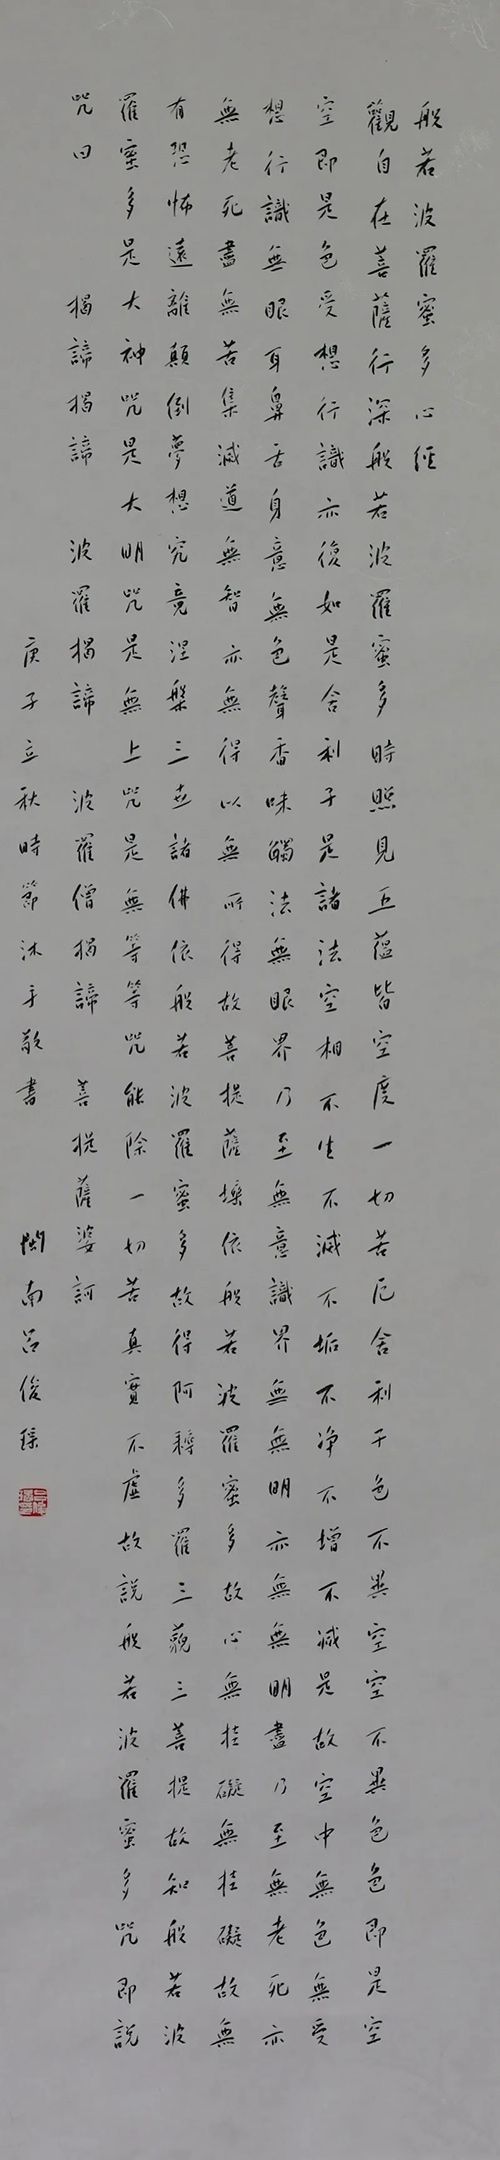 般若波羅蜜多心經
觀自在菩薩行深般若波羅蜜多時照見五蘊皆空度一切苦厄舍利子色不異空空不異色色即是空
空即是色受想行識亦復如是舍利子是諸法空相不生不滅不垢不净不增不減是故空中無色無受
想行識無眼耳鼻舌身意無色聲香味觸法無眼界乃至無意識界無無明亦無無明盡乃至無老死亦
無老死盡無苦集滅道無智亦無得以無所得故菩提薩埵依般若波羅蜜多故心無挂礙無挂礙故無
有恐怖遠離顛倒夢想究竟涅槃三世諸佛依般若波羅蜜多故得阿耨多羅三藐三菩提故知般若波
羅蜜多是大神咒是大明咒是無上咒是無等等咒能除一切苦真實不虛故說般若波羅蜜多咒即說
咒曰 揭諦揭諦 波羅揭諦 波羅僧揭諦 菩提薩婆訶
庚子立秋時節沐手敬書 閩南呂俊